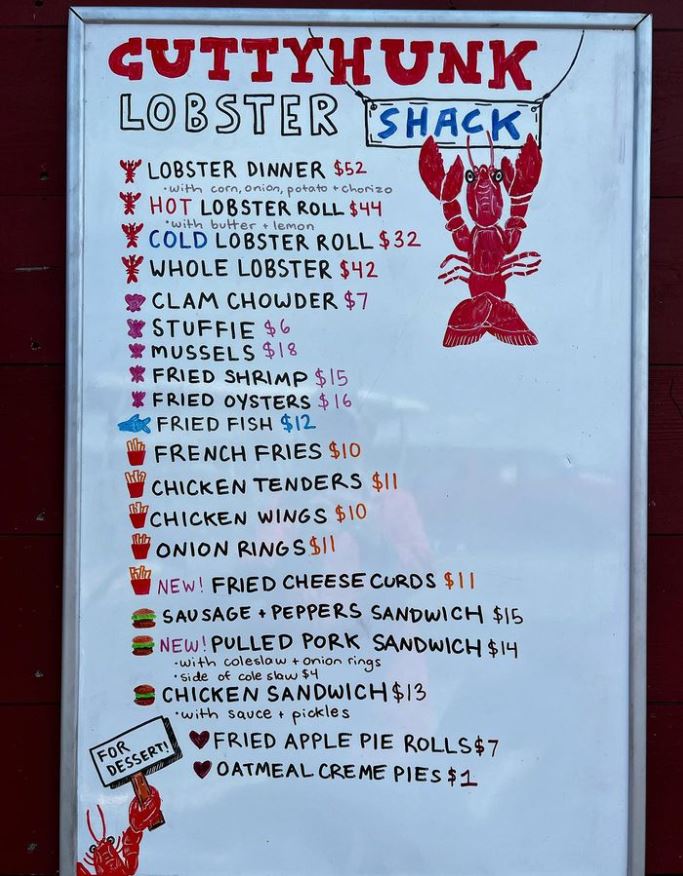 CUTTYHUNK
LOBSTER SHACK
LOBSTER DINNER $52
•with corn, onion, potato + chorizo
HOT LOBSTER ROLL $44
•with butter + lemon
COLD LOBSTER ROLL $32
WHOLE LOBSTER $42
CLAM CHOWDER $7
STUFFIE $6
MUSSELS $18
FRIED SHRIMP $15
FRIED OYSTERS $16
FRIED FISH $12
FRENCH FRIES $10
CHICKEN TENDERS $11
CHICKEN WINGS $10
ONION RINGS $11
NEW! FRIED CHEESE CURDS $11
SAUSAGE + PEPPERS SANDWICH $15
NEW! PULLED PORK SANDWICH $14
•with coleslaw + onion rings
•side of cole slaw $4
CHICKEN SANDWICH $13
•with sauce + pickles
FOR
DESSERT!
FRIED APPLE PIE ROLLS $7
OATMEAL CREME PIES $1